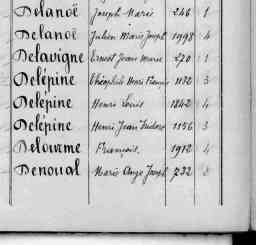 Delanoë Joseph Marie 246 1
Delanoë Julien Marie Joseph 1998 4
Delavigne Ernest Jean Marie 270 1
Delépine Théophile Henri François 1132 3
Delépine Henri Louis 1842 4
Delépine Henri Jean Isidore 1156 3
Delourme François 1912 4
Denoual Marie Ange Joseph 732